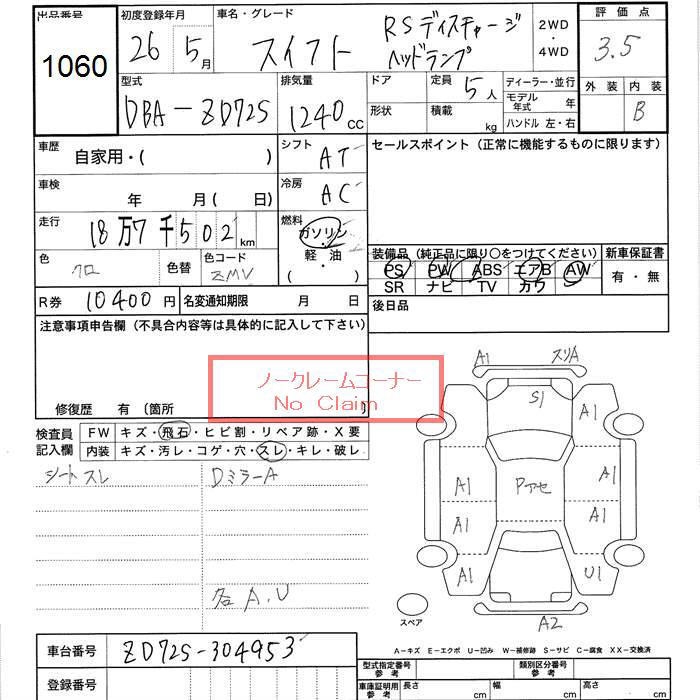 出品番号
1060
初度登録年月
26年5月
車名・グレード
スイフト RSディスチャージ
ヘッドランプ
2WD
・
4WD
評価点
3.5
外装 内装
B
型式
DBA-ZD72S
排気量
1240cc
ドア
形状
定員 5人
積載 kg
ディーラー・並行
モデル年式 年
ハンドル 左・右
車歴
自家用・( )
シフト AT
車検
年 月( 日)
冷房 AC
走行
18万7千502km
燃料
ガソリン
・
軽油
( )
色
クロ
色替
色コード
ZMV
R券 10400円
名変通知期限 月 日
セールスポイント(正常に機能するものに限ります)
装備品(純正品に限り○をつけてください)
新車保証書
PS PW ABS エアB AW
SR ナビ TV カワ
有・無
後日品
注意事項申告欄(不具合内容等は具体的に記入して下さい)
ノークレームコーナー
No Claim
修復歴 有(箇所 )
検査員
記入欄
FW キズ・飛石・ヒビ割・リペア跡・X要
内装 キズ・汚レ・コゲ・穴・スレ・キレ・破レ
シートスレ
DミラーA
各A.U
A1 スリA
S1
A1
A1
A1
Pアセ
A1
A1
A1
U1
スペア
A2
A-キズ E-エクボ U-凹み W-補修跡 S-サビ C-腐食 XX-交換済
車台番号 ZD72S-304953
登録番号
型式指定番号
参考
類別区分番号
参考
車庫証明用
参考
長さ cm 幅 cm 高さ cm